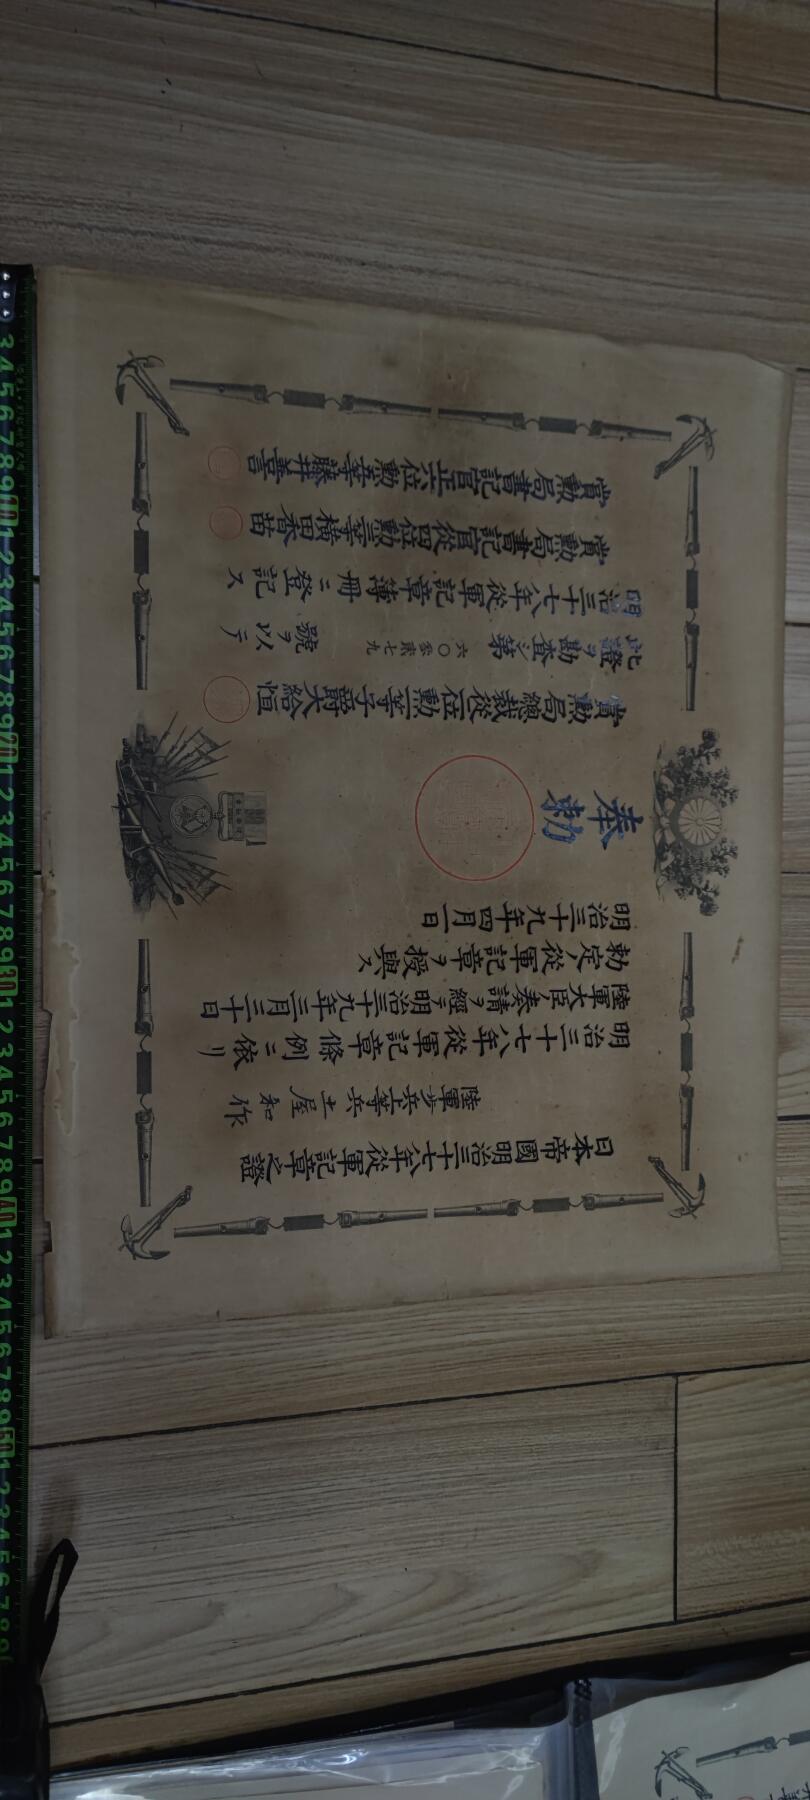 日本帝國明治三十七八年從軍記章之證
陸軍歩兵上等兵土屋和作
明治三十七八年從軍記章條例ニ依リ
陸軍大臣ノ奏請ヲ經テ明治三十九年三月三十日
勅定ノ從軍記章ヲ授與ス
明治三十九年四月一日
奉勅
賞勲局總裁從二位勲一等子爵大給恒
此證ヲ勘査シ第六〇参貳七九號ヲ以テ
明治三十七八年從軍記章簿冊ニ登記ス
賞勲局書記官從四位勲三等横田香苗
賞勲局書記官正六位勲五等藤井善言